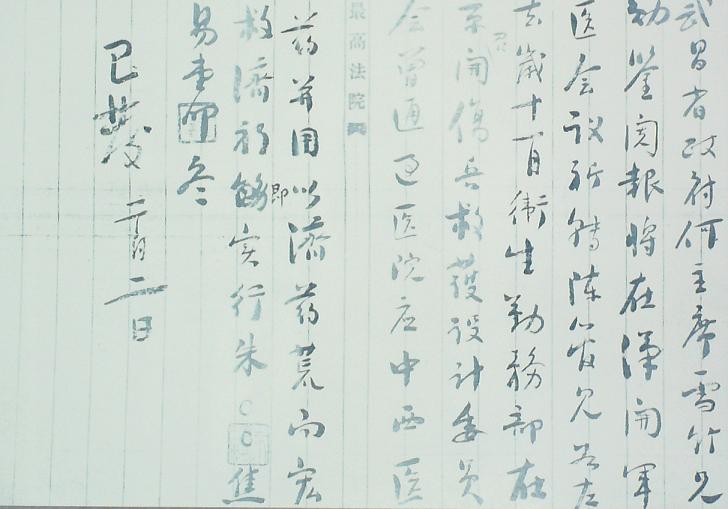 武昌省政府何主席雪竹兄
勋鉴阅报将在汉开军
医会议所转陈管见如左
去岁十一月卫生勤务部在
京召开伤兵救护设计委员
会曾通过医院应中西医
最高法院
药并用以济药荒而宏
救济祈饬即实行朱〇〇焦
易堂叩冬
已发
十一月二日